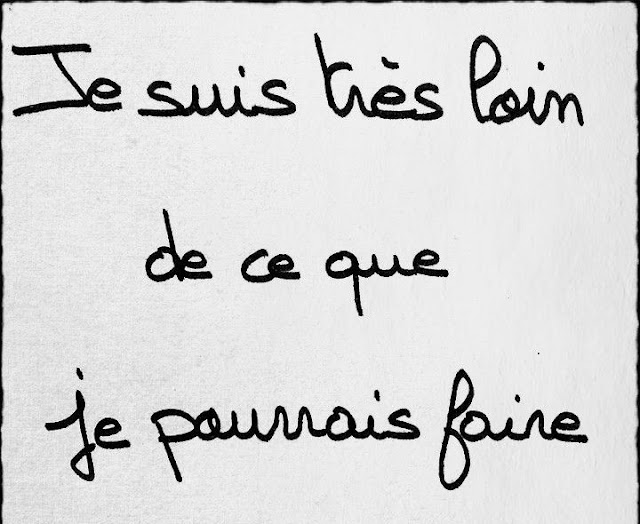 Je suis très loin
de ce que
je pourrais faire